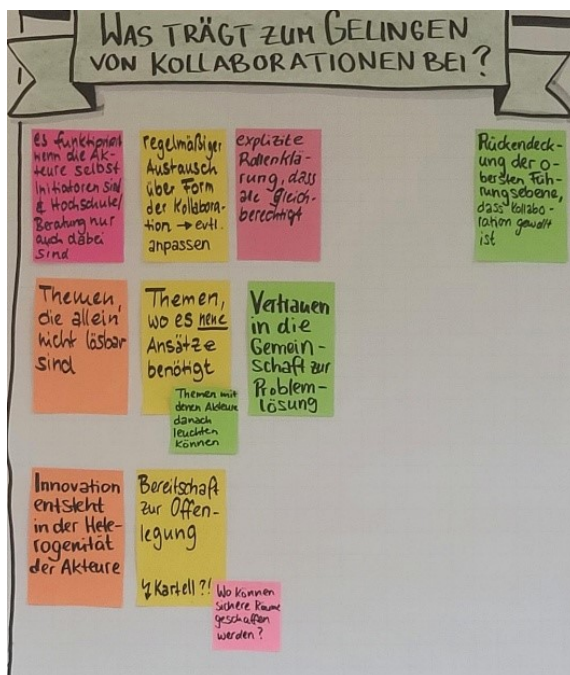 WAS TRÄGT ZUM GELINGEN
VON KOLLABORATIONEN BEI?
es funktioniert
wenn die Ak-
teure selbst
Initiatoren sind
& Hochschule/
Beratung nur
auch dabei
sind
regelmäßiger
Austausch
über Form
der Kollabora-
tion → evtl.
anpassen
explizite
Rollenklä-
rung, dass
alle gleich-
berechtigt
Rückendeck-
ung der o-
bersten Füh-
rungsebene,
dass Kollabo-
ration gewollt
ist
Themen,
die allein
nicht lösbar
sind
Themen,
wo es neue
Ansätze
benötigt
Themen mit
denen Akteure
danach
leuchten
können
Vertrauen
in die
Gemein-
schaft zur
Problem-
lösung
Innovation
entsteht
in der Hete-
rogenität
der Akteure
Bereitschaft
zur Offen-
legung
↯ Kartell?!
Wo können
sichere Räume
geschaffen
werden?